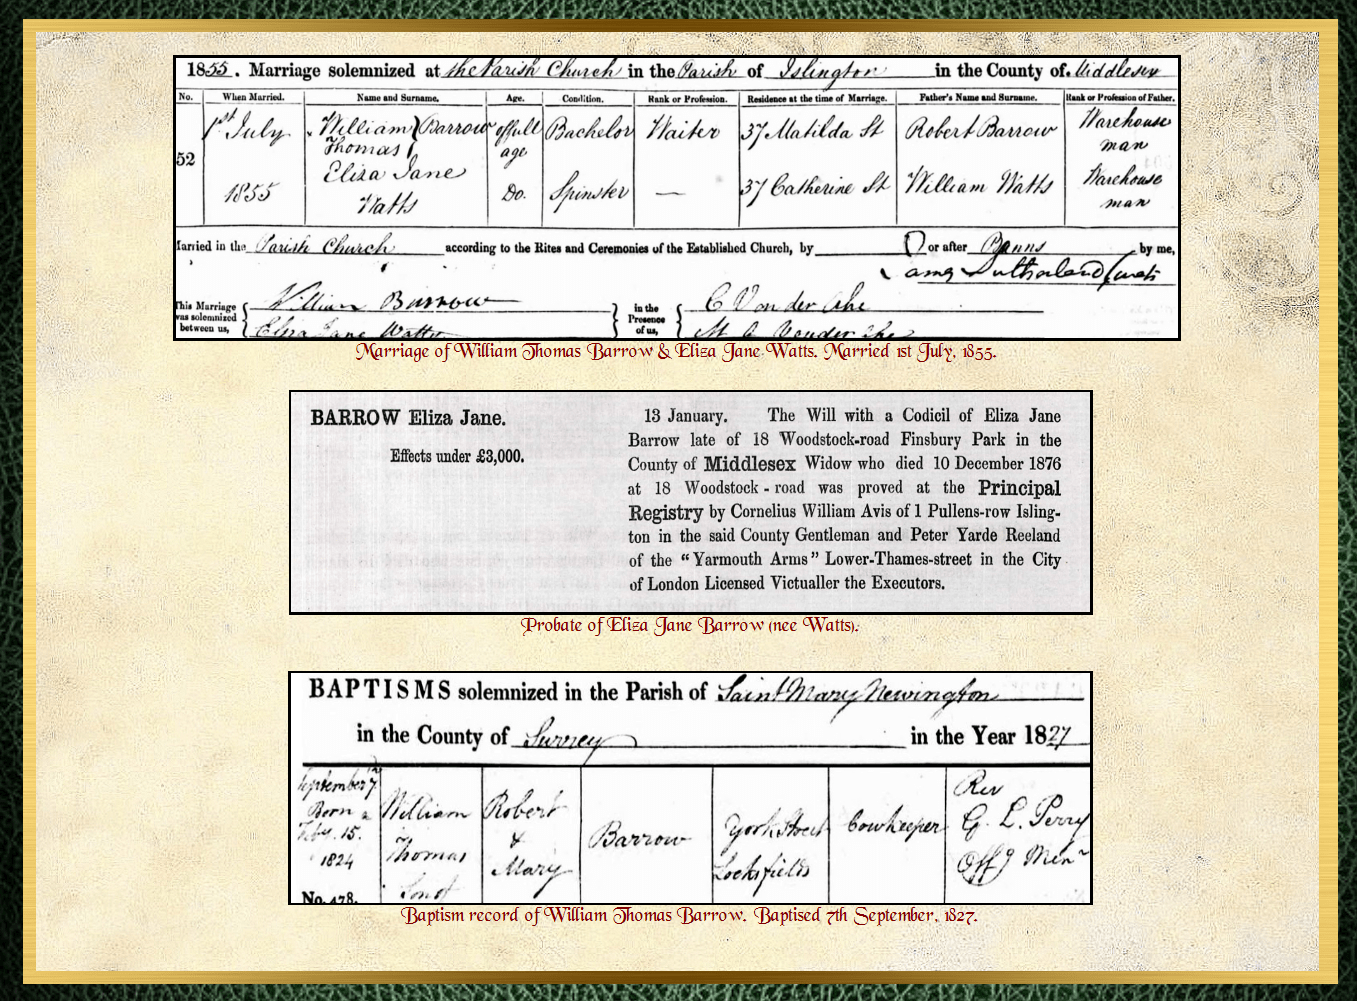 1855. Marriage solemnized at the Parish Church in the Parish of Islington in the County of Middlesex
No. When Married. Name and Surname. Age. Condition. Rank or Profession. Residence at the time of Marriage. Father's Name and Surname. Rank or Profession of Father.
52 1st July 1855
William Thomas } Barrow of full age Bachelor Waiter 37 Matilda St Robert Barrow Warehouse man
Eliza Jane Watts Do. Spinster — 37 Catherine St William Watts Warehouse man
Married in the Parish Church according to the Rites and Ceremonies of the Established Church, by or after Banns by me,
James Sutherland Curate
This Marriage was solemnized between us, { William Barrow } in the Presence of us, { C Von der Ahe
Eliza Jane Watts
Marriage of William Thomas Barrow & Eliza Jane Watts. Married 1st July, 1855.
BARROW Eliza Jane.
Effects under £3,000.
13 January. The Will with a Codicil of Eliza Jane
Barrow late of 18 Woodstock-road Finsbury Park in the
County of Middlesex Widow who died 10 December 1876
at 18 Woodstock-road was proved at the Principal
Registry by Cornelius William Avis of 1 Pullens-row Isling-
ton in the said County Gentleman and Peter Yarde Reeland
of the "Yarmouth Arms" Lower-Thames-street in the City
of London Licensed Victualler the Executors.
Probate of Eliza Jane Barrow (nee Watts).
BAPTISMS solemnized in the Parish of Saint Mary Newington
in the County of Surrey in the Year 1827
September 7th
Born
Feby. 15.
1824
No. 478.
William
Thomas
Son of
Robert
&
Mary
Barrow
York Street
Locksfields
Cowkeeper
Rev
G. L. Perry
Offg Minr
Baptism record of William Thomas Barrow. Baptised 7th September, 1827.